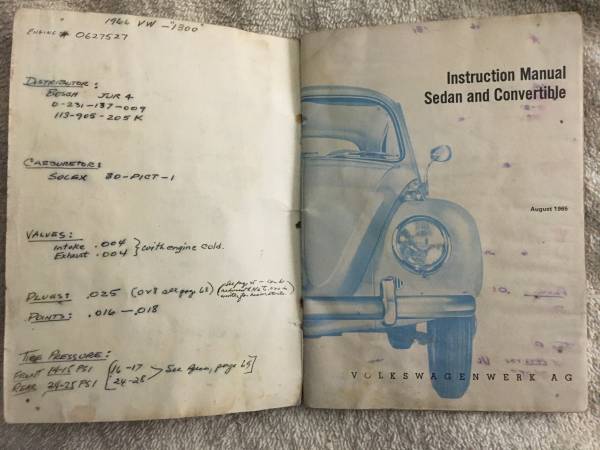 1966 VW - "1300"
ENGINE # 0627527
DISTRIBUTOR:
BOSCH JUR 4
0-231-137-009
113-905-205K
CARBURETOR:
SOLEX 30-PICT-1
VALVES:
Intake .004
Exhaust .004 } with engine cold.
PLUGS: .025 (see page 68)
POINTS: .016 - .018
TIRE PRESSURE:
FRONT 14-15 PSI [16-17
REAR 24-25 PSI [24-28 > See page 65]
Instruction Manual
Sedan and Convertible
August 1965
VOLKSWAGENWERK AG